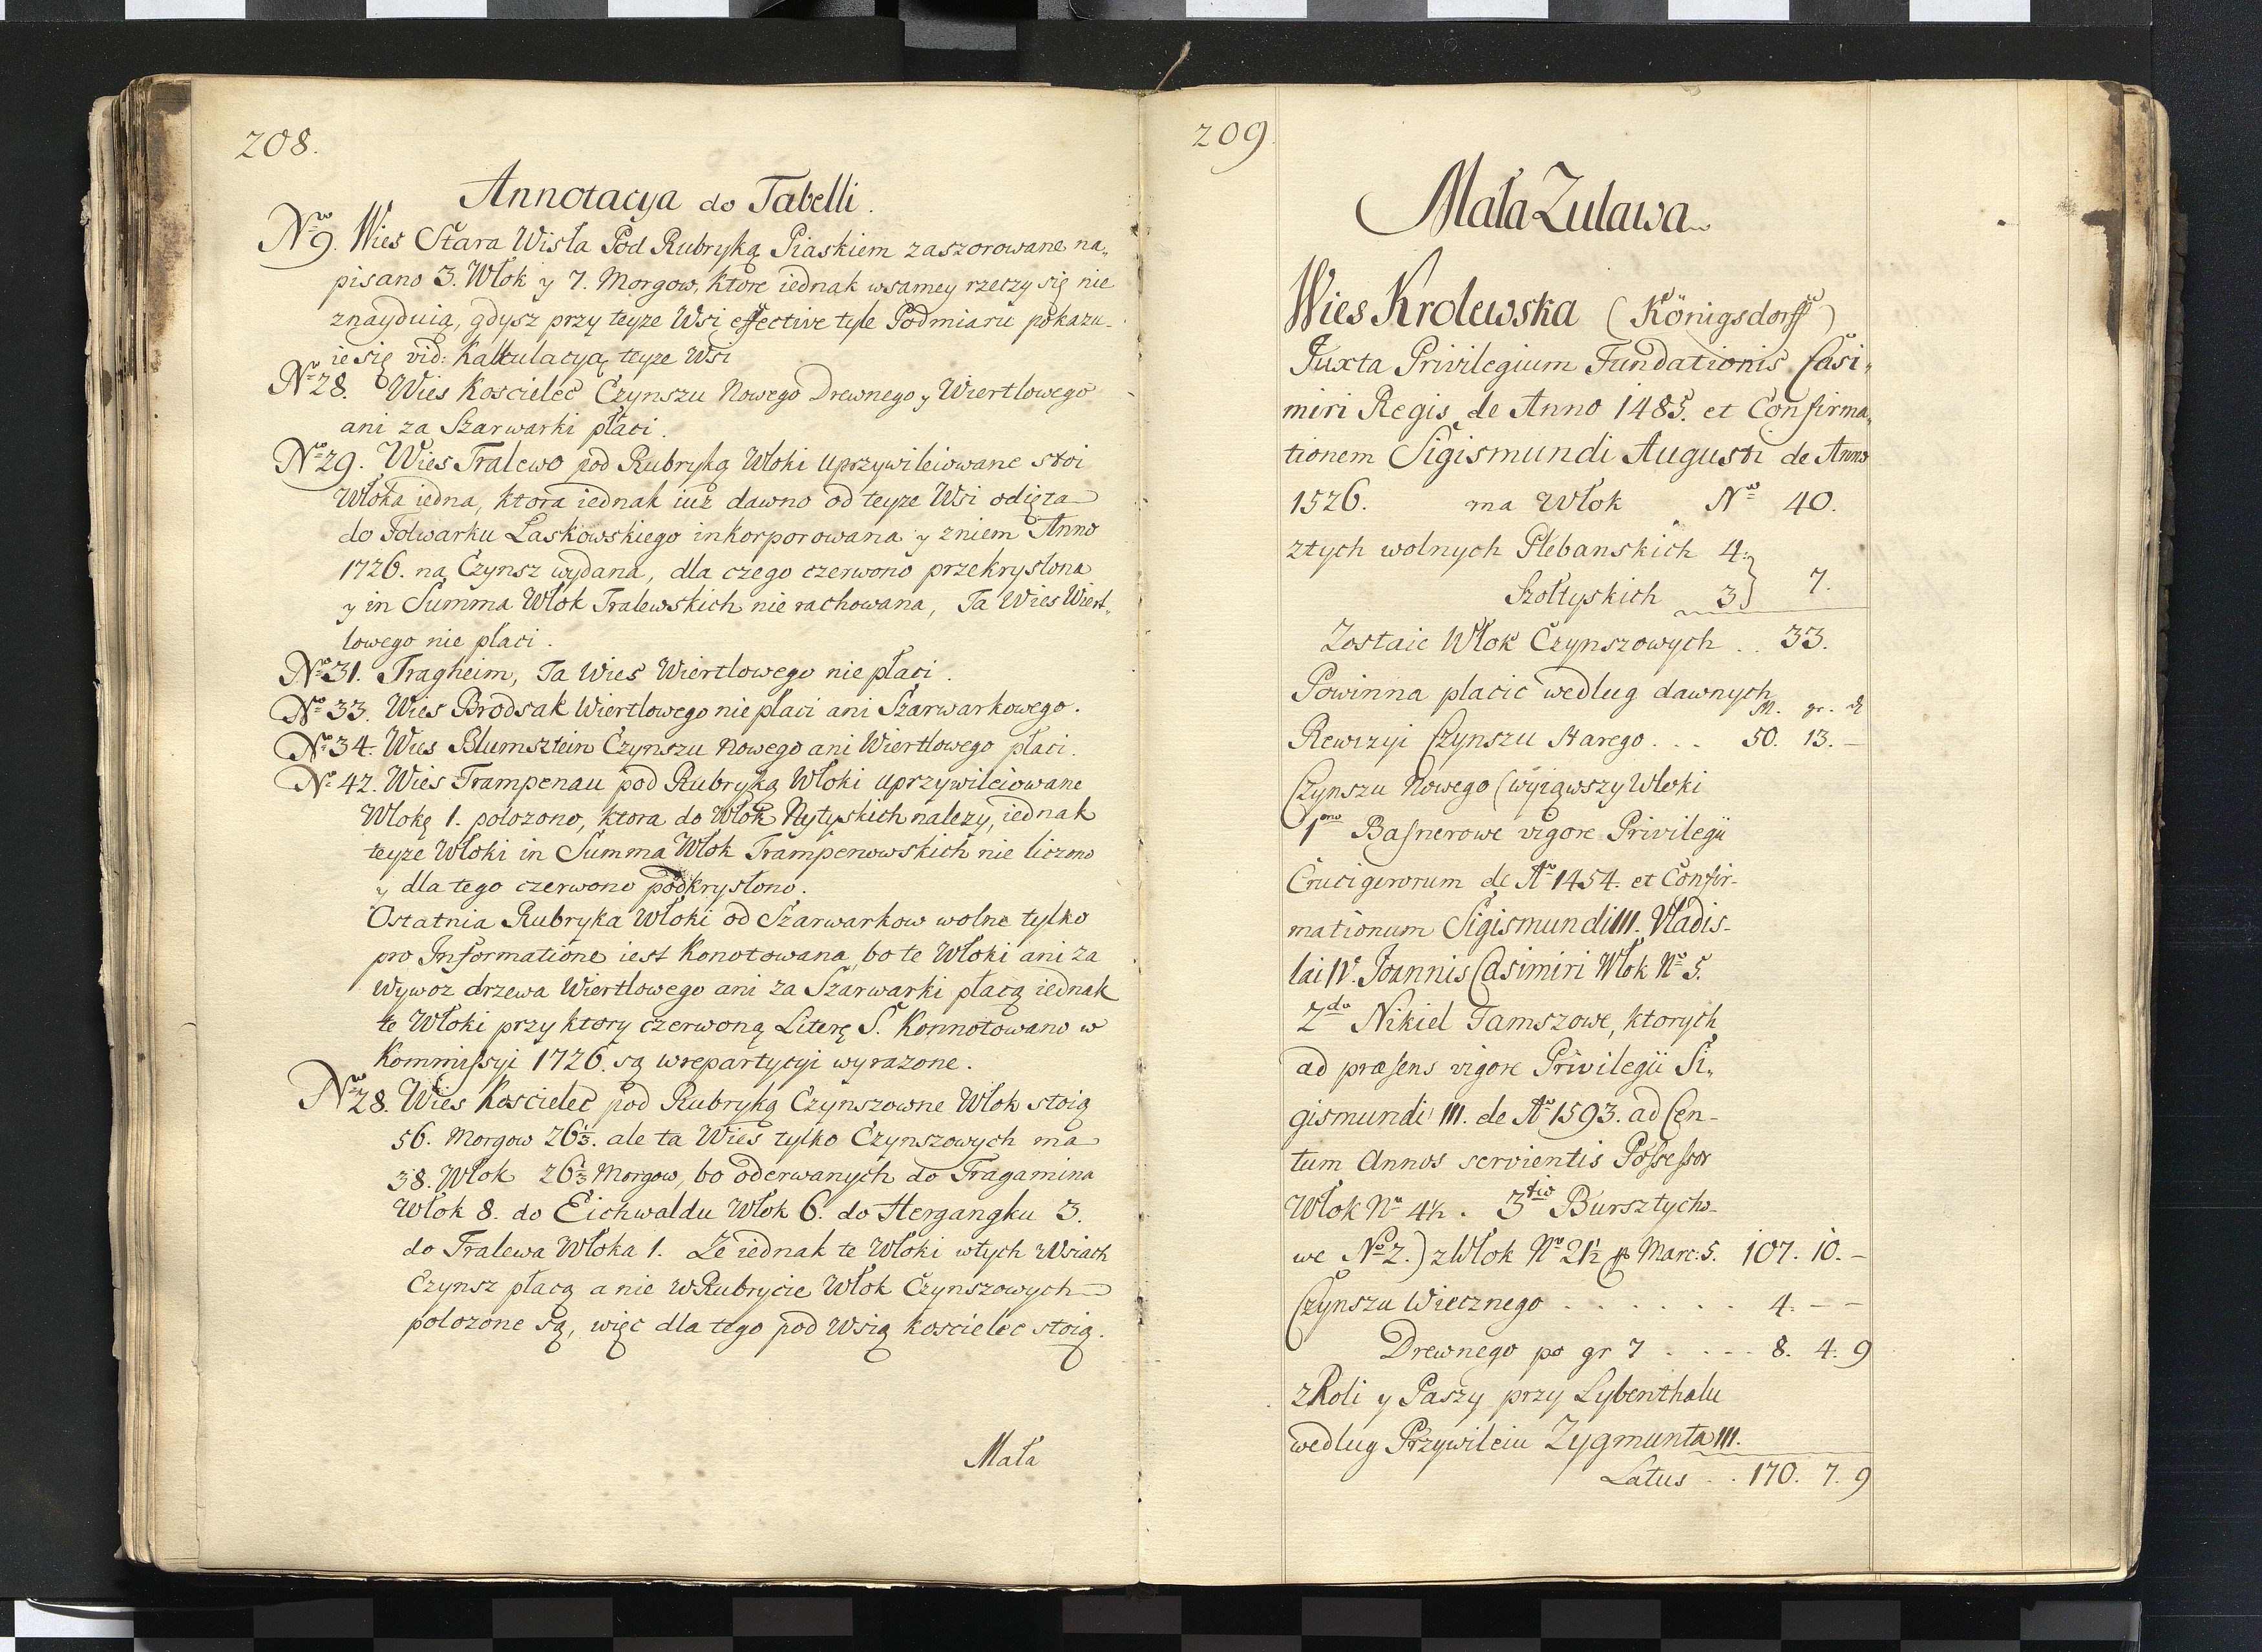 208.
Annotacya do Tabelli.
No 9. Wies Stara Wisła Pod Rubryką Piaskiem zaszorowane na„
pisano 3. Włok y 7. Morgow, ktore iednak wsamey rzeczy się nie
znayduią, gdysz przy teyze Wsi effective tyle Podmiaru pokazu-
ie się vid: Kalkulacyą teyze Wsi
No 28. Wies Koscielec Czynszu Nowego Drewnego y Wiertlowego
ani za Szarwarki płaci.
No 29. Wies Tralewo pod Rubryką Włoki uprzywileiowane stoi
Włoka iedna, ktora iednak iuż dawno od teyze Wsi odięta
do Folwarku Laskowskiego inkorporowana y zniem Anno
1726. na Czynsz wydana, dla czego czerwono przekrysłona
y in Summa Włok Tralewskich nie rachowana, Ta Wies Wiert„
lowego nie płaci.
No 31. Tragheim, Ta Wies Wiertlowego nie płaci.
No 33. Wies Brodsak Wiertlowego nie płaci ani Szarwarkowego.
No 34. Wies Blumsztein Czynszu Nowego ani Wiertlowego płaci.
No 42. Wies Trampenau pod Rubryką Włoki uprzywileiowane
Włokę 1. polozono, ktora do Włok Nytyskich nalezy, iednak
teyze Włoki in Summa Włok Trampenowskich nie liczono
y dla tego czerwono podkrysłono.
Ostatnia Rubryka Włoki od Szarwarkow wolne tylko
pro Informatione iest Konotowana, bo te Włoki ani za
Wywoz drzewa Wiertlowego ani za Szarwarki płacą iednak
te Włoki przy ktory czerwoną Literę S. Konnotowano w
Kommissyi 1726. są wrepartycyi wyrazone.
No 28. Wies Koscielec pod Rubryką Czynszowne Włok stoią
56. Morgow 26⅓. ale ta Wies tylko Czynszowych ma
38. Włok 26⅓ Morgow, bo oderwanych do Tragamina
Włok 8. do Eichwaldu Włok 6. do Hergangku 3.
do Tralewa Włoka 1. Ze iednak te Włoki wtych Wsiach
Czynsz płacą a nie w Rubrycie Włok Czynszowych
polozone są, więc dla tego pod Wsią koscielec stoią.
Mała
209.
Mała Zulawa
Wies Krolewska (Königsdorff)
Juxta Privilegium Fundationis Casi„
miri Regis de Anno 1485. et Confirma„
tionem Sigismundi Augusti de Anno
1526. ma Włok No 40.
ztych wolnych Plebanskich 4.
Szołtyskich 3} 7.
Zostaie Włok Czynszowych .. 33.
Powinna placic wedlug dawnych
M. gr. ₰
Rewizyi Czynszu Starego ... 50. 13. –
Czynszu Nowego (wyiąwszy Włoki
1mo Basnerowe vigore Privilegii
Crucigerorum de Ao 1454. et Confir-
mationum Sigismundi III. Vladis-
lai IV. Joannis Casimiri Włok No 5.
2do Nikiel Tamszowe, ktorych
ad præsens vigore Privilegii Si„
gismundi III. de Ao 1593. ad Cen-
tum Annos servientis Possessor
Włok No 4½. 3tio Bursztycho-
we No 2.) z Włok No 21½ p Marc: 5. 107. 10. –
Czynszu Wiecznego ....... 4. – –
Drewnego po gr 7 .... 8. 4. 9
z Roli y Paszy przy Lybenthalu
wedlug Przywileiu Zygmunta III.
Latus .. 170. 7. 9